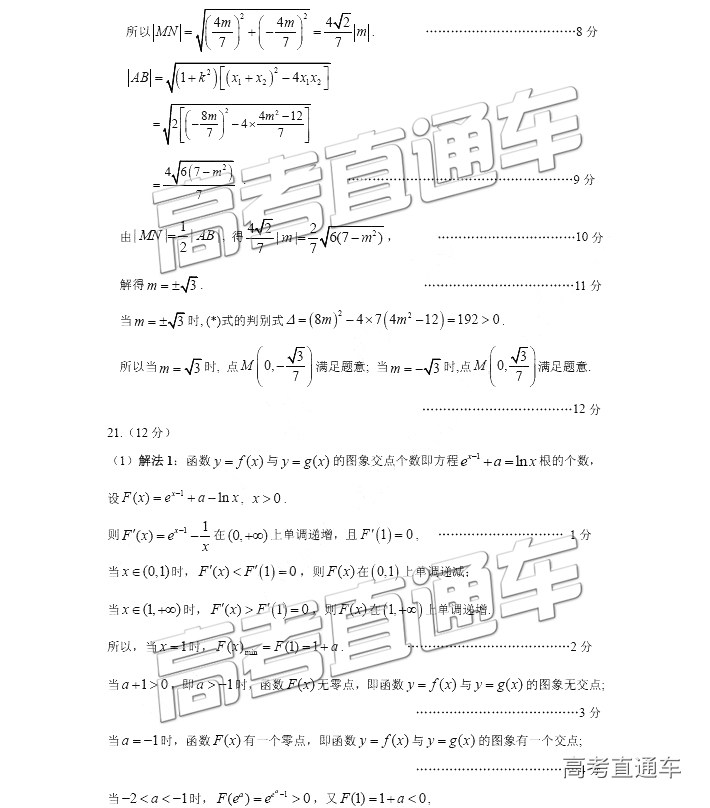 所以|MN| = √((4m/7)² + (−4m/7)²) = (4√2/7)|m|. ………………………………8分
|AB| = √((1+k²)[(x₁+x₂)²−4x₁x₂])
= √(2[(−8m/7)²−4×(4m²−12)/7])
= 4√(6(7−m²))/7 ………………………………………9分
由|MN|=½|AB|, 得(4√2/7)|m|=(2/7)√(6(7−m²)), ………………………10分
解得m=±√3. ………………………………11分
当m=±√3时, (*)式的判别式Δ=(8m)²−4×7(4m²−12)=192>0.
所以当m=√3时, 点M(0,−√3/7)满足题意; 当m=−√3时,点M(0,√3/7)满足题意.
………………………………12分
21.(12分)
(1)解法1:函数y=f(x)与y=g(x)的图象交点个数即方程eˣ⁻¹+a=ln x根的个数,
设F(x)=eˣ⁻¹+a−ln x, x>0.
则F′(x)=eˣ⁻¹−1/x在(0,+∞)上单调递增,且F′(1)=0, ……………………1分
当x∈(0,1)时,F′(x)<F′(1)=0,则F(x)在(0,1)上单调递减;
当x∈(1,+∞)时,F′(x)>F′(1)=0,则F(x)在(1,+∞)上单调递增.
所以,当x=1时,F(x)min=F(1)=1+a. ……………………………2分
当a+1>0,即a>−1时,函数F(x)无零点,即函数y=f(x)与y=g(x)的图象无交点;
……………………………3分
当a=−1时,函数F(x)有一个零点,即函数y=f(x)与y=g(x)的图象有一个交点;
高考直通车
当−2<a<−1时,F(eᵃ)=e^(eᵃ−1)>0,又F(1)=1+a<0,
高考直通车
高考直通车